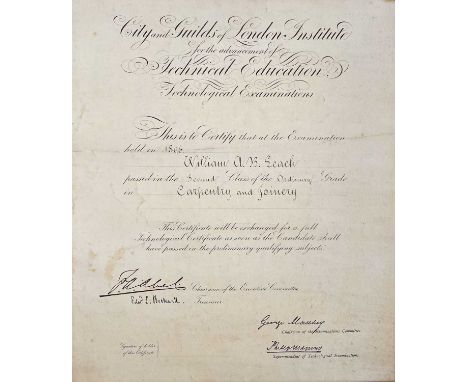 City and Guilds of London Institute
for the advancement of
Technical Education
Technological Examinations
This is to Certify that at the Examination
held in
William A. B. Leach
passed in the Second Class of the Ordinary Grade
in Carpentry and Joinery
This Certificate will be exchanged for a full
Technological Certificate as soon as the Candidate shall
have passed in the preliminary qualifying subjects.
Chairman of the Executive Committee
Treasurer
George Matthey
Chairman of Examinations Committee
Philip Magnus
Superintendent of Technological Examinations
Signature of Holder
of this Certificate